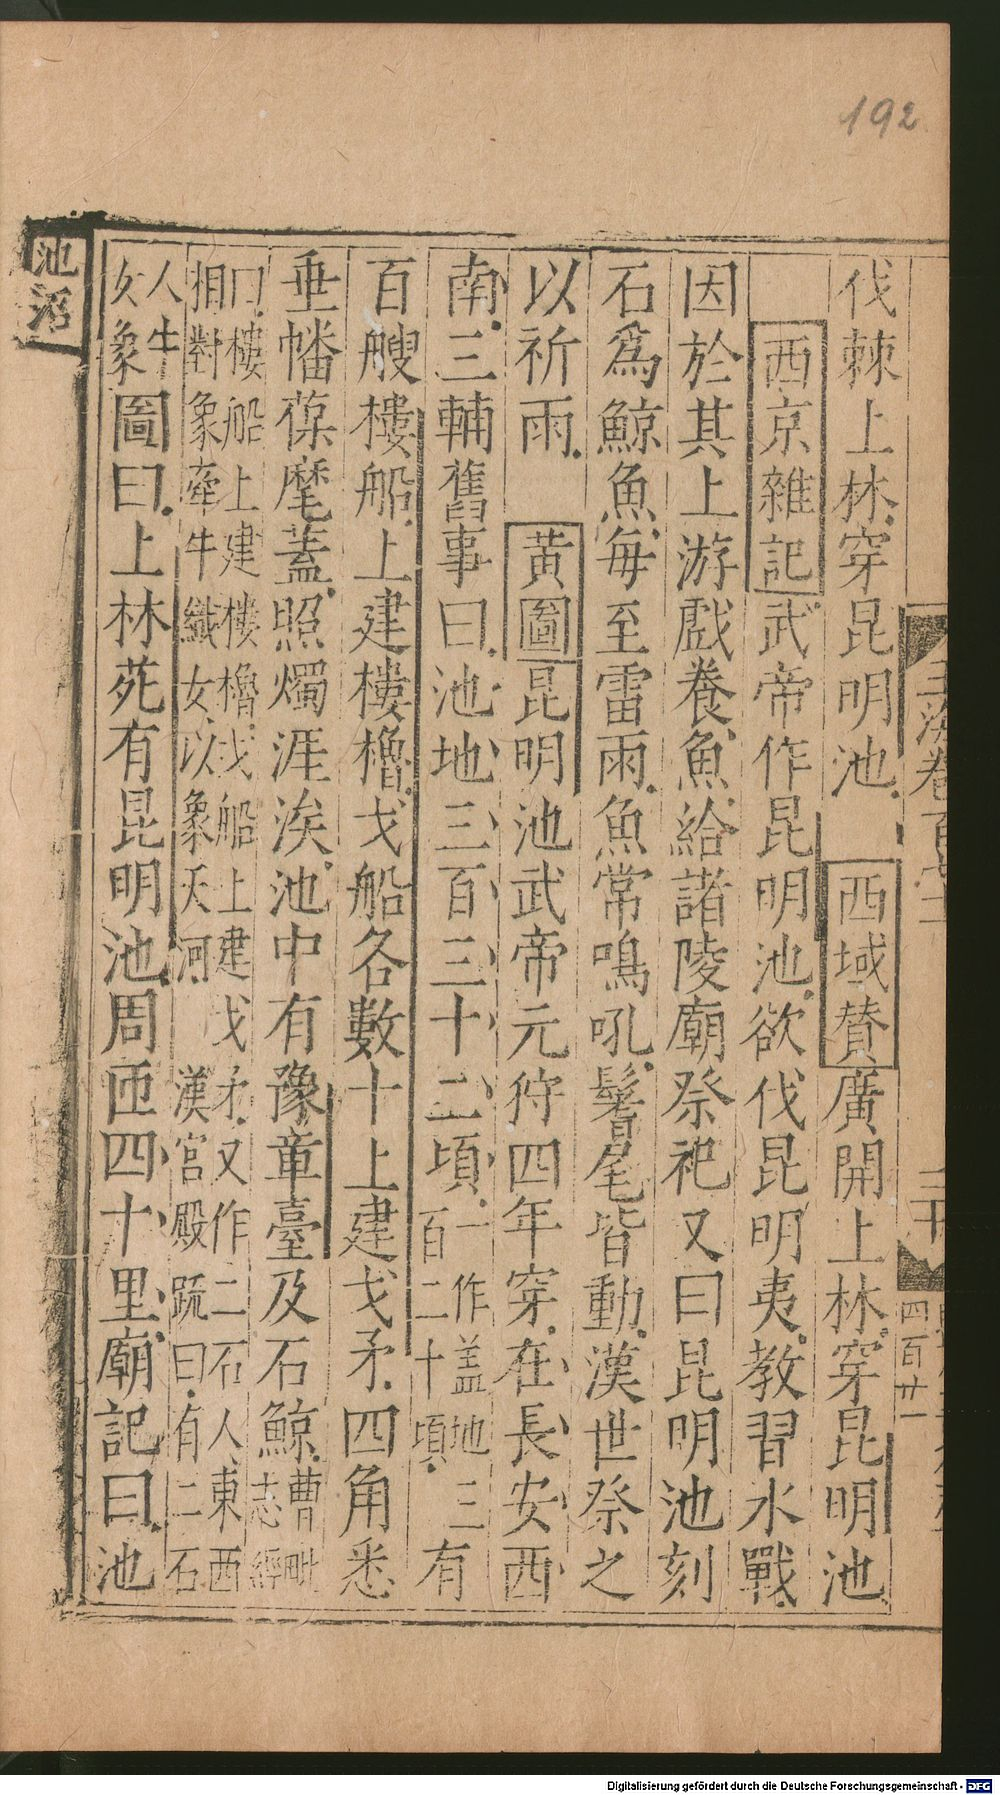 192
伐棘上林穿昆明池　西域贊廣開上林穿昆明池
西京雜記武帝作昆明池欲伐昆明夷教習水戰
因於其上游戲養魚魚給諸陵廟祭祀又曰昆明池刻
石爲鯨魚每至雷雨魚常鳴吼鬐尾皆動漢世祭之
以祈雨　黃圖昆明池武帝元狩四年穿在長安西
南三輔舊事曰池地三百三十二頃一作盖地三百二十頃有
百艘樓船上建樓櫓戈船各數十上建戈矛四角悉
垂幡葆麾蓋照燭涯涘池中有豫章臺及石鯨曹毗志經
曰樓船上建樓櫓戈船上建戈矛又作二石人東西
相對象牽牛織女以象天河　漢宮殿疏曰有二石
人牛女象圖曰上林苑有昆明池周匝四十里廟記曰池
池沼
玉海卷百
二十
四百廿一
Digitalisierung gefördert durch die Deutsche Forschungsgemeinschaft - DFG